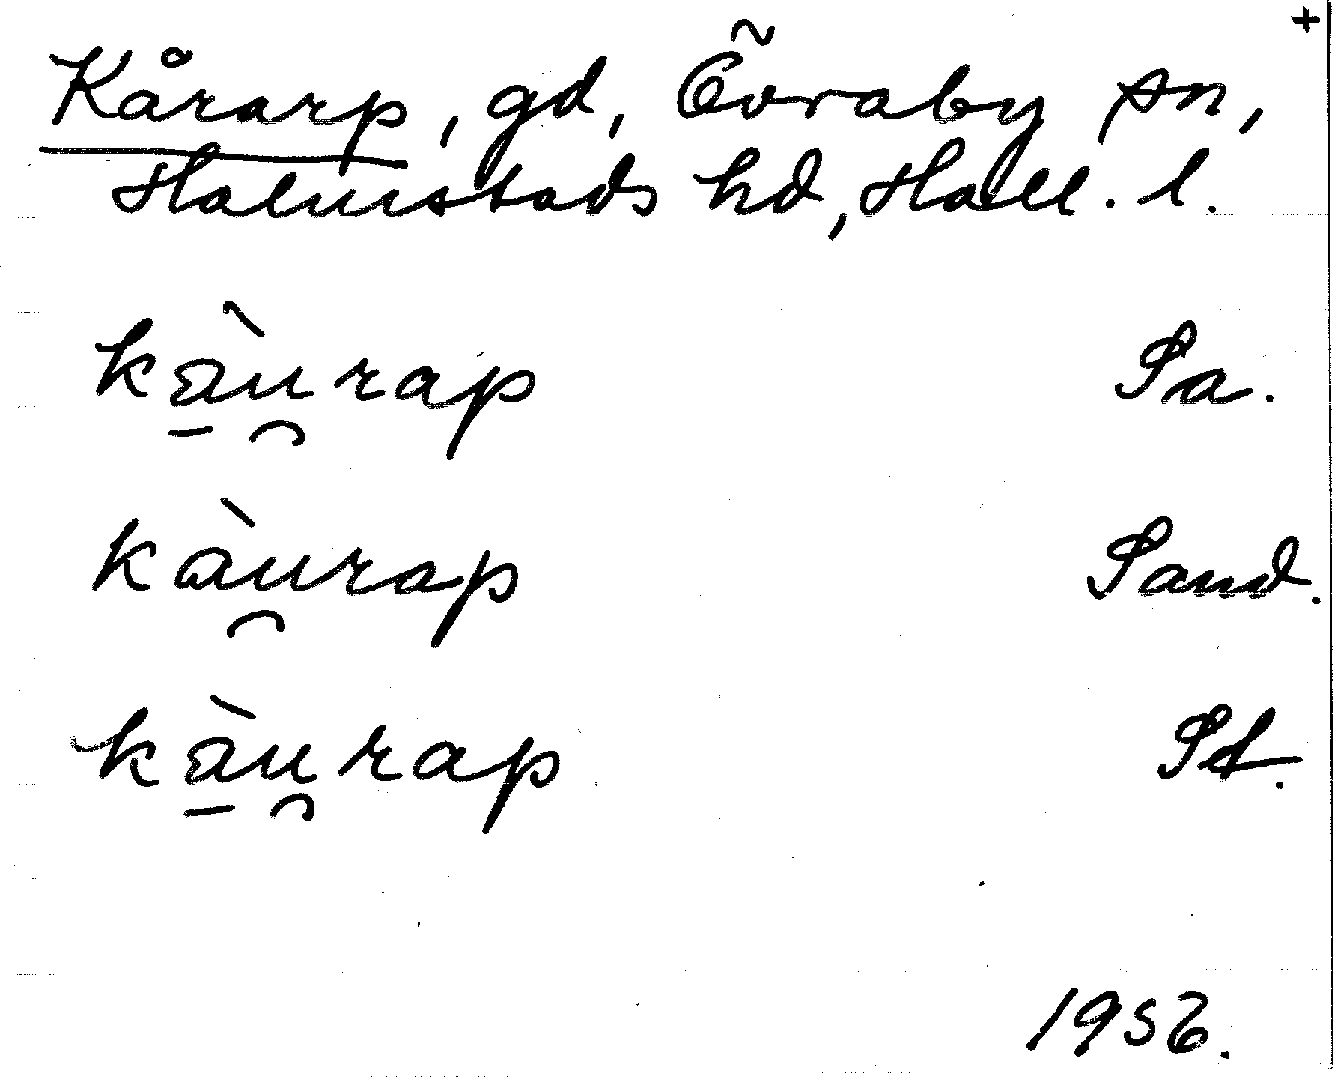 +
Kårarp, gd, Övraby sn,
Halmstads hd, Hall. l.
kà̱u̯rap Sa.
kàu̯rap Sand.
kà̱u̯rap St.
1956.